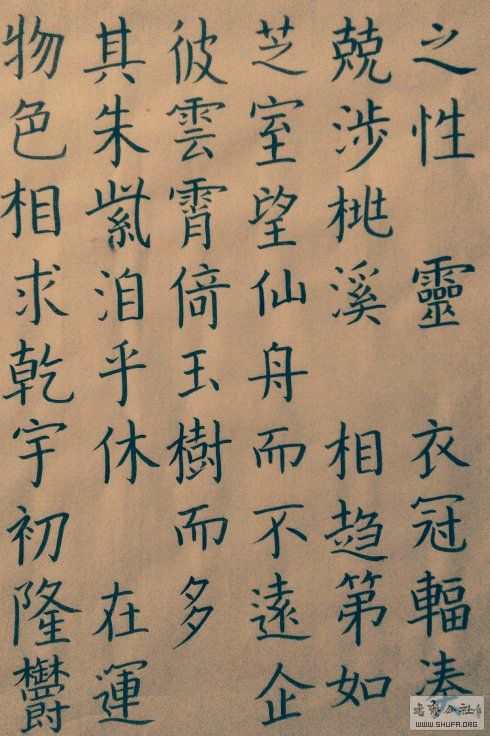 之性 靈 衣冠輻湊
兢涉桃溪 相趨第如
芝室望仙舟而不遠企
彼雲霄倚玉樹而多
其朱紫洎乎休 在運
物色相求乾宇初隆欝
WWW.SHUFA.ORG